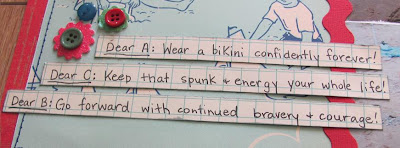 Dear A: Wear a biKini confidently forever!
Dear C: Keep that spunk & energy your whole life!
Dear B: Go forward with continued bravery & courage!